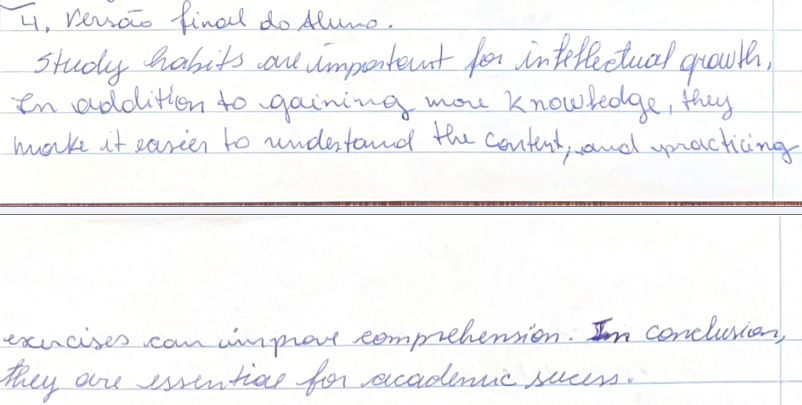 4. Versão final do Aluno.
Study habits are important for intellectual growth,
In addition to gaining more knowledge, they
make it easier to understand the content, and practicing
exercises can improve comprehension. In conclusion,
they are essential for academic sucess.